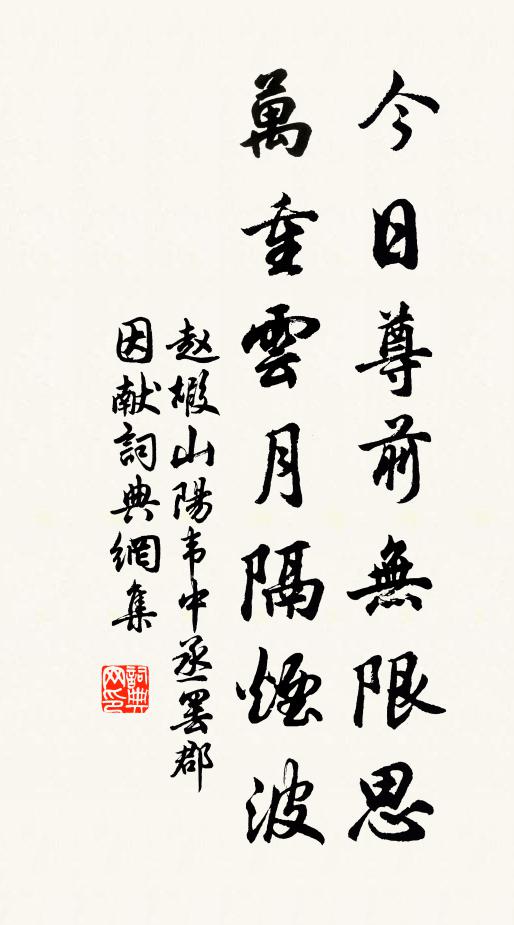 今日尊前無限思
萬重雲月隔煙波
赵嘏山陽韦中丞罢郡
因献詞典網集
詞典网印